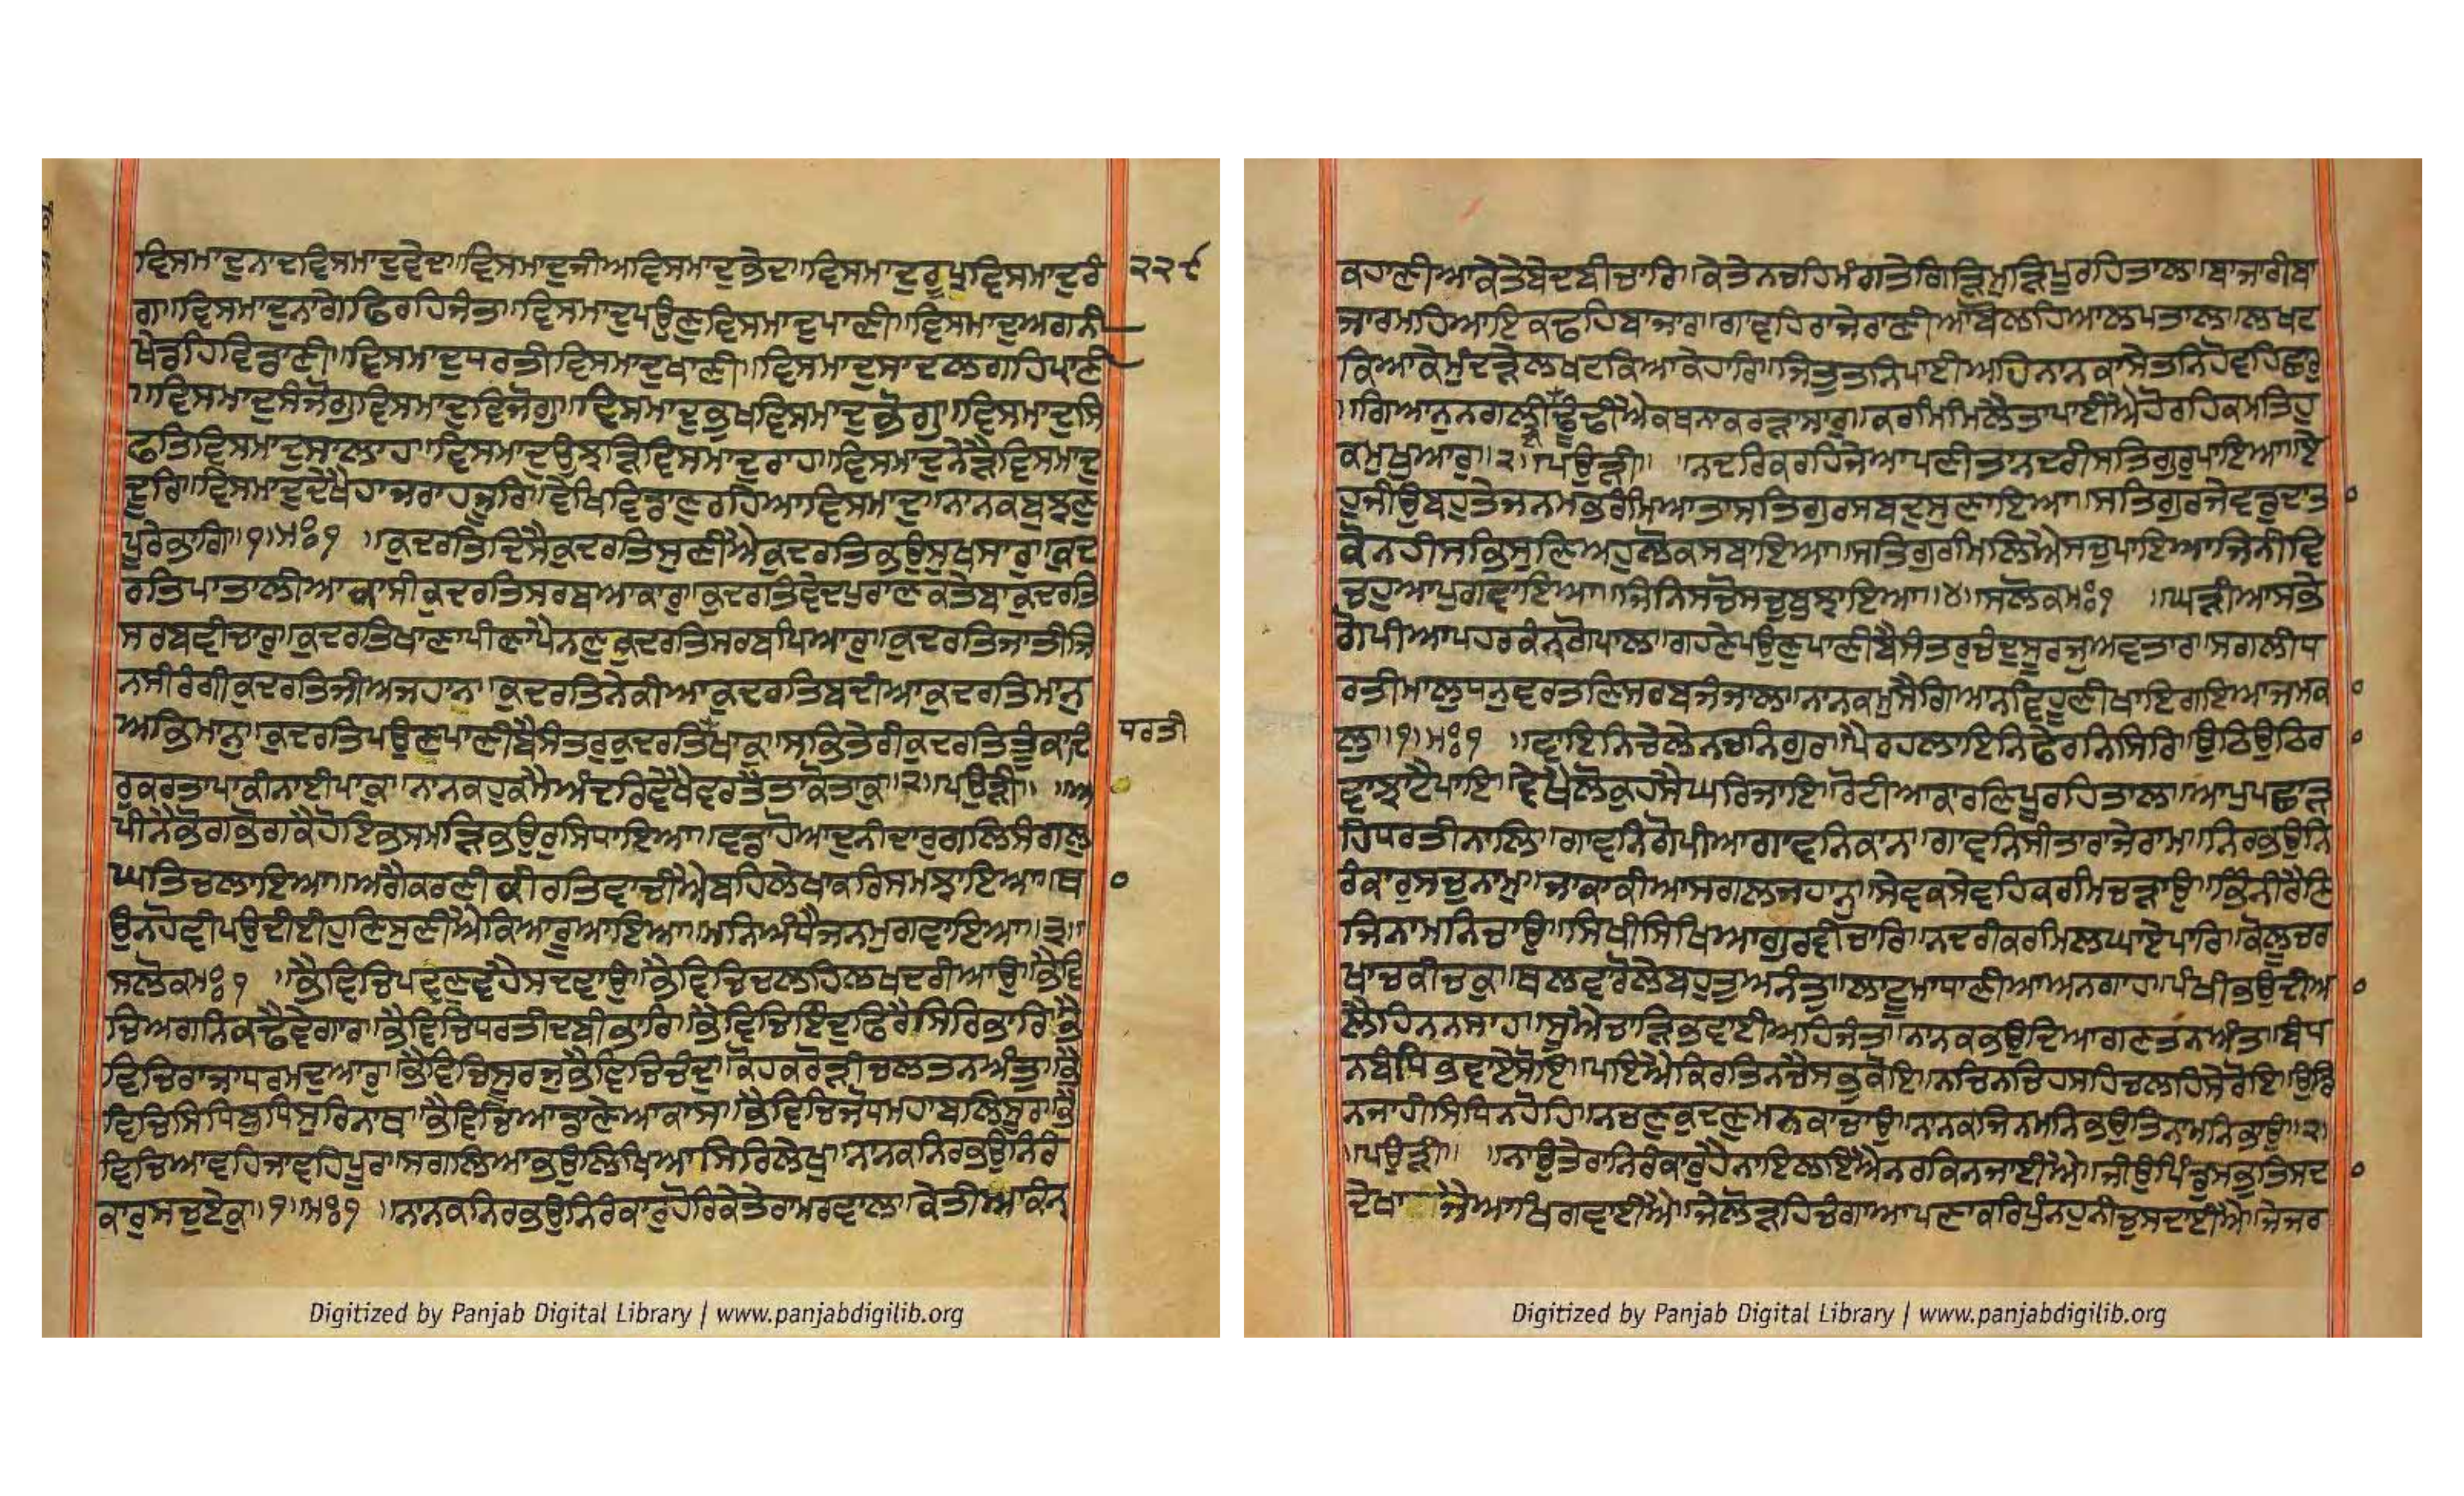 ਵਿਸਮਾਦੁਨਾਦਵਿਸਮਾਦੁਵੇਦ॥ਵਿਸਮਾਦੁਜੀਅਵਿਸਮਾਦੁਭੇਦ॥ਵਿਸਮਾਦੁਰੂਪਵਿਸਮਾਦੁਰੰ
੨੨੯
ਗ॥ਵਿਸਮਾਦੁਨਾਗੇਫਿਰਹਿਜੰਤ॥ਵਿਸਮਾਦੁਪਉਣੁਵਿਸਮਾਦੁਪਾਣੀ॥ਵਿਸਮਾਦੁਅਗਨੀ
ਖੇਡਹਿਵਿਡਾਣੀ॥ਵਿਸਮਾਦੁਧਰਤੀਵਿਸਮਾਦੁਖਾਣੀ॥ਵਿਸਮਾਦੁਸਾਦਲਗਹਿਪਾਣੀ
॥ਵਿਸਮਾਦੁਸੰਜੋਗੁਵਿਸਮਾਦੁਵਿਜੋਗੁ॥ਵਿਸਮਾਦੁਭੁਖਵਿਸਮਾਦੁਭੋਗੁ॥ਵਿਸਮਾਦੁਸਿ
ਫਤਿਵਿਸਮਾਦੁਸਾਲਾਹ॥ਵਿਸਮਾਦੁਉਝੜਿਵਿਸਮਾਦੁਰਾਹ॥ਵਿਸਮਾਦੁਨੇੜੈਵਿਸਮਾਦੁ
ਦੂਰਿ॥ਵਿਸਮਾਦੁਦੇਖੈਹਾਜਰਾਹਜੂਰਿ॥ਵੇਖਿਵਿਡਾਣੁਰਹਿਆਵਿਸਮਾਦੁ॥ਨਾਨਕਬੁਝਣੁ
ਪੂਰੇਭਾਗਿ॥੧॥ਮਃ੧ ॥ਕੁਦਰਤਿਦਿਸੈਕੁਦਰਤਿਸੁਣੀਐਕੁਦਰਤਿਭਉਸੁਖਸਾਰੁ॥ਕੁਦ
ਰਤਿਪਾਤਾਲੀਆਕਾਸੀਕੁਦਰਤਿਸਰਬਆਕਾਰੁ॥ਕੁਦਰਤਿਵੇਦਪੁਰਾਣਕਤੇਬਾਕੁਦਰਤਿ
ਸਰਬਵੀਚਾਰੁ॥ਕੁਦਰਤਿਖਾਣਾਪੀਣਾਪੈਨਣੁਕੁਦਰਤਿਸਰਬਪਿਆਰੁ॥ਕੁਦਰਤਿਜਾਤੀਜਿ
ਨਸੀਰੰਗੀਕੁਦਰਤਿਜੀਅਜਹਾਨ॥ਕੁਦਰਤਿਨੇਕੀਆਕੁਦਰਤਿਬਦੀਆਕੁਦਰਤਿਮਾਨੁ
ਅਭਿਮਾਨੁ॥ਕੁਦਰਤਿਪਉਣੁਪਾਣੀਬੈਸੰਤਰੁਕੁਦਰਤਿਖਾਕੁ॥ਸਭਤੇਰੀਕੁਦਰਤਿਤੂੰਕਾਦਿ
ਧਰਤੀ
ਰੁਕਰਤਾਪਾਕੀਨਾਈਪਾਕੁ॥ਨਾਨਕਹੁਕਮੈਅੰਦਰਿਵੇਖੈਵਰਤੈਤਾਕੋਤਾਕੁ॥੨॥ਪਉੜੀ॥ ॥ਆ
ਪੀਨੈਭੋਗਭੋਗਕੈਹੋਇਭਸਮੜਿਭਉਰੁਸਿਧਾਇਆ॥ਵਡਾਹੋਆਦੁਨੀਦਾਰੁਗਲਿਸੰਗਲੁ
ਘਤਿਚਲਾਇਆ॥ਅਗੈਕਰਣੀਕੀਰਤਿਵਾਚੀਐਬਹਿਲੇਖਾਕਰਿਸਮਝਾਇਆ॥ਥ
ਉਨਹੋਵੀਪਉਦੀਈਹੁਣਿਸੁਣੀਐਕਿਆਰੂਆਇਆ॥ਮਨਿਅੰਧੈਜਨਮੁਗਵਾਇਆ॥੩॥
ਸਲੋਕਮਃ੧ ॥ਭੈਵਿਚਿਪਵਣੁਵਹੈਸਦਵਾਉ॥ਭੈਵਿਚਿਚਲਹਿਲਖਦਰੀਆਉ॥ਭੈਵਿ
ਚਿਅਗਨਿਕਢੈਵੇਗਾਰ॥ਭੈਵਿਚਿਧਰਤੀਦਬੀਭਾਰਿ॥ਭੈਵਿਚਿਇੰਦੁਫਿਰੈਸਿਰਿਭਾਰਿ॥ਭੈ
ਵਿਚਿਰਾਜਾਧਰਮਦੁਆਰੁ॥ਭੈਵਿਚਿਸੂਰਜੁਭੈਵਿਚਿਚੰਦੁ॥ਕੋਹਕਰੋੜੀਚਲਤਨਅੰਤੁ॥ਭੈ
ਵਿਚਿਸਿਧਿਬੁਧਿਸੁਰਿਨਾਥ॥ਭੈਵਿਚਿਆਡਾਣੇਆਕਾਸ॥ਭੈਵਿਚਿਜੋਧਮਹਾਬਲਿਸੂਰ॥ਭੈ
ਵਿਚਿਆਵਹਿਜਾਵਹਿਪੂਰ॥ਸਗਲਿਆਭਉਲਿਖਿਆਸਿਰਿਲੇਖੁ॥ਨਾਨਕਨਿਰਭਉਨਿਰੰ
ਕਾਰੁਸਚੁਏਕੁ॥੧॥ਮਃ੧ ॥ਨਾਨਕਨਿਰਭਉਨਿਰੰਕਾਰੁਹੋਰਿਕੇਤੇਰਾਮਰਵਾਲ॥ਕੇਤੀਆਕੰਨ੍
ਕਹਾਣੀਆਕੇਤੇਬੇਦਬੀਚਾਰਿ॥ਕੇਤੇਨਚਹਿਮੰਗਤੇਗਿੜਿਮੁੜਿਪੂਰਹਿਤਾਲ॥ਬਾਜਾਰੀਬਾ
ਜਾਰਮਹਿਆਇਕਢਹਿਬਾਜਾਰ॥ਗਾਵਹਿਰਾਜੇਰਾਣੀਆਬੋਲਹਿਆਲਪਤਾਲ॥ਲਖਟ
ਕਿਆਕੇਮੁੰਦੜੇਲਖਟਕਿਆਕੇਹਾਰਿ॥ਜਿਤੁਤਨਿਪਾਈਅਹਿਨਾਨਕਾਸੇਤਨਿਹੋਵਹਿਛਾਰੁ
॥ਗਿਆਨੁਨਗਲੀਢੂੰਢੀਐਕਥਨਾਕਰੜਾਸਾਰੁ॥ਕਰਮਿਮਿਲੈਤਾਪਾਈਐਹੋਰਹਿਕਮਤਿਹੁ
ਕਮੁਖੁਆਰੁ॥੨॥ਪਉੜੀ॥ ॥ਨਦਰਿਕਰਹਿਜੇਆਪਣੀਤਾਨਦਰੀਸਤਿਗੁਰੁਪਾਇਆ॥ਏ
ਹੁਜੀਉਬਹੁਤੇਜਨਮਭਰੰਮਿਆਤਾਸਤਿਗੁਰਸਬਦੁਸੁਣਾਇਆ॥ਸਤਿਗੁਰਜੇਵਡੁਦਾਤਾ
ਕੋਨਹੀਸਭਿਸੁਣਿਅਹੁਲੋਕਸਬਾਇਆ॥ਸਤਿਗੁਰਮਿਲਿਐਸਚੁਪਾਇਆਜਿਨੀਵਿ
ਚਹੁਆਪੁਗਵਾਇਆ॥ਜਿਨਿਸਚੋਸਚੁਬੁਝਾਇਆ॥੪॥ਸਲੋਕਮਃ੧ ॥ਘੜੀਆਸਭੇ
ਗੋਪੀਆਪਹਰਕੰਨ੍ਗੋਪਾਲ॥ਗਹਣੇਪਉਣੁਪਾਣੀਬੈਸੰਤਰੁਚੰਦੁਸੂਰਜੁਅਵਤਾਰ॥ਸਗਲੀਧ
ਰਤੀਮਾਲੁਧਨੁਵਰਤਣਿਸਰਬਜੰਜਾਲ॥ਨਾਨਕਮੁਸੈਗਿਆਨਵਿਹੂਣੀਖਾਇਗਇਆਜਮਕਾ
ਲੁ॥੧॥ਮਃ੧ ॥ਵਾਇਨਿਚੇਲੇਨਚਨਿਗੁਰ॥ਪੈਰਹਲਾਇਨਿਫੇਰਨਿਸਿਰਿ॥ਉਠਿਉਠਿਰ
ਵਾਝਾਟੈਪਾਇ॥ਵੇਖੈਲੋਕੁਹਸੈਘਰਿਜਾਇ॥ਰੋਟੀਆਕਾਰਣਿਪੂਰਹਿਤਾਲ॥ਆਪੁਪਛਾੜ
ਹਿਧਰਤੀਨਾਲਿ॥ਗਾਵਨਿਗੋਪੀਆਗਾਵਨਿਕਾਨ॥ਗਾਵਨਿਸੀਤਾਰਾਜੇਰਾਮ॥ਨਿਰਭਉਨਿ
ਰੰਕਾਰੁਸਚੁਨਾਮੁ॥ਜਾਕਾਕੀਆਸਗਲਜਹਾਨੁ॥ਸੇਵਕਸੇਵਹਿਕਰਮਿਚੜਾਉ॥ਭਿੰਨੀਰੈਣਿ
ਜਿਨਾਮਨਿਚਾਉ॥ਸਿਖੀਸਿਖਿਆਗੁਰਵੀਚਾਰਿ॥ਨਦਰੀਕਰਮਿਲਘਾਏਪਾਰਿ॥ਕੋਲੂਚਰ
ਖਾਚਕੀਚਕੁ॥ਥਲਵਾਰੋਲੇਬਹੁਤੁਅਨੰਤੁ॥ਲਾਟੂਮਾਧਾਣੀਆਅਨਗਾਹ॥ਪੰਖੀਭਉਦੀਆ
ਲੈਹਿਨਨਸਾਹ॥ਸੂਐਚਾੜਿਭਵਾਈਅਹਿਜੰਤ॥ਨਾਨਕਭਉਦਿਆਗਣਤਨਅੰਤ॥ਬੰਧ
ਨਬੰਧਿਭਵਾਏਸੋਇ॥ਪਇਐਕਿਰਤਿਨਚੈਸਭੁਕੋਇ॥ਨਚਿਨਚਿਹਸਹਿਚਲਹਿਸੇਰੋਇ॥ਉਡਿ
ਨਜਾਹੀਸਿਧਨਹੋਹਿ॥ਨਚਣੁਕੁਦਣੁਮਨਕਾਚਾਉ॥ਨਾਨਕਜਿਨਮਨਿਭਉਤਿਨਾਮਨਿਭਾਉ॥੨॥
॥ਪਉੜੀ॥ ॥ਨਾਉਤੇਰਾਨਿਰੰਕਾਰੁਹੈਨਾਇਲਇਐਨਰਕਿਨਜਾਈਐ॥ਜੀਉਪਿੰਡੁਸਭੁਤਿਸਦਾ
ਦੇਖਾਜੈਆਖਿਗਵਾਈਐ॥ਜੇਲੋੜਹਿਚੰਗਾਆਪਣਾਕਰਿਪੁੰਨਹੁਨੀਚੁਸਦਾਈਐ॥ਜੇਜਰ
Digitized by Panjab Digital Library | www.panjabdigilib.org
Digitized by Panjab Digital Library | www.panjabdigilib.org